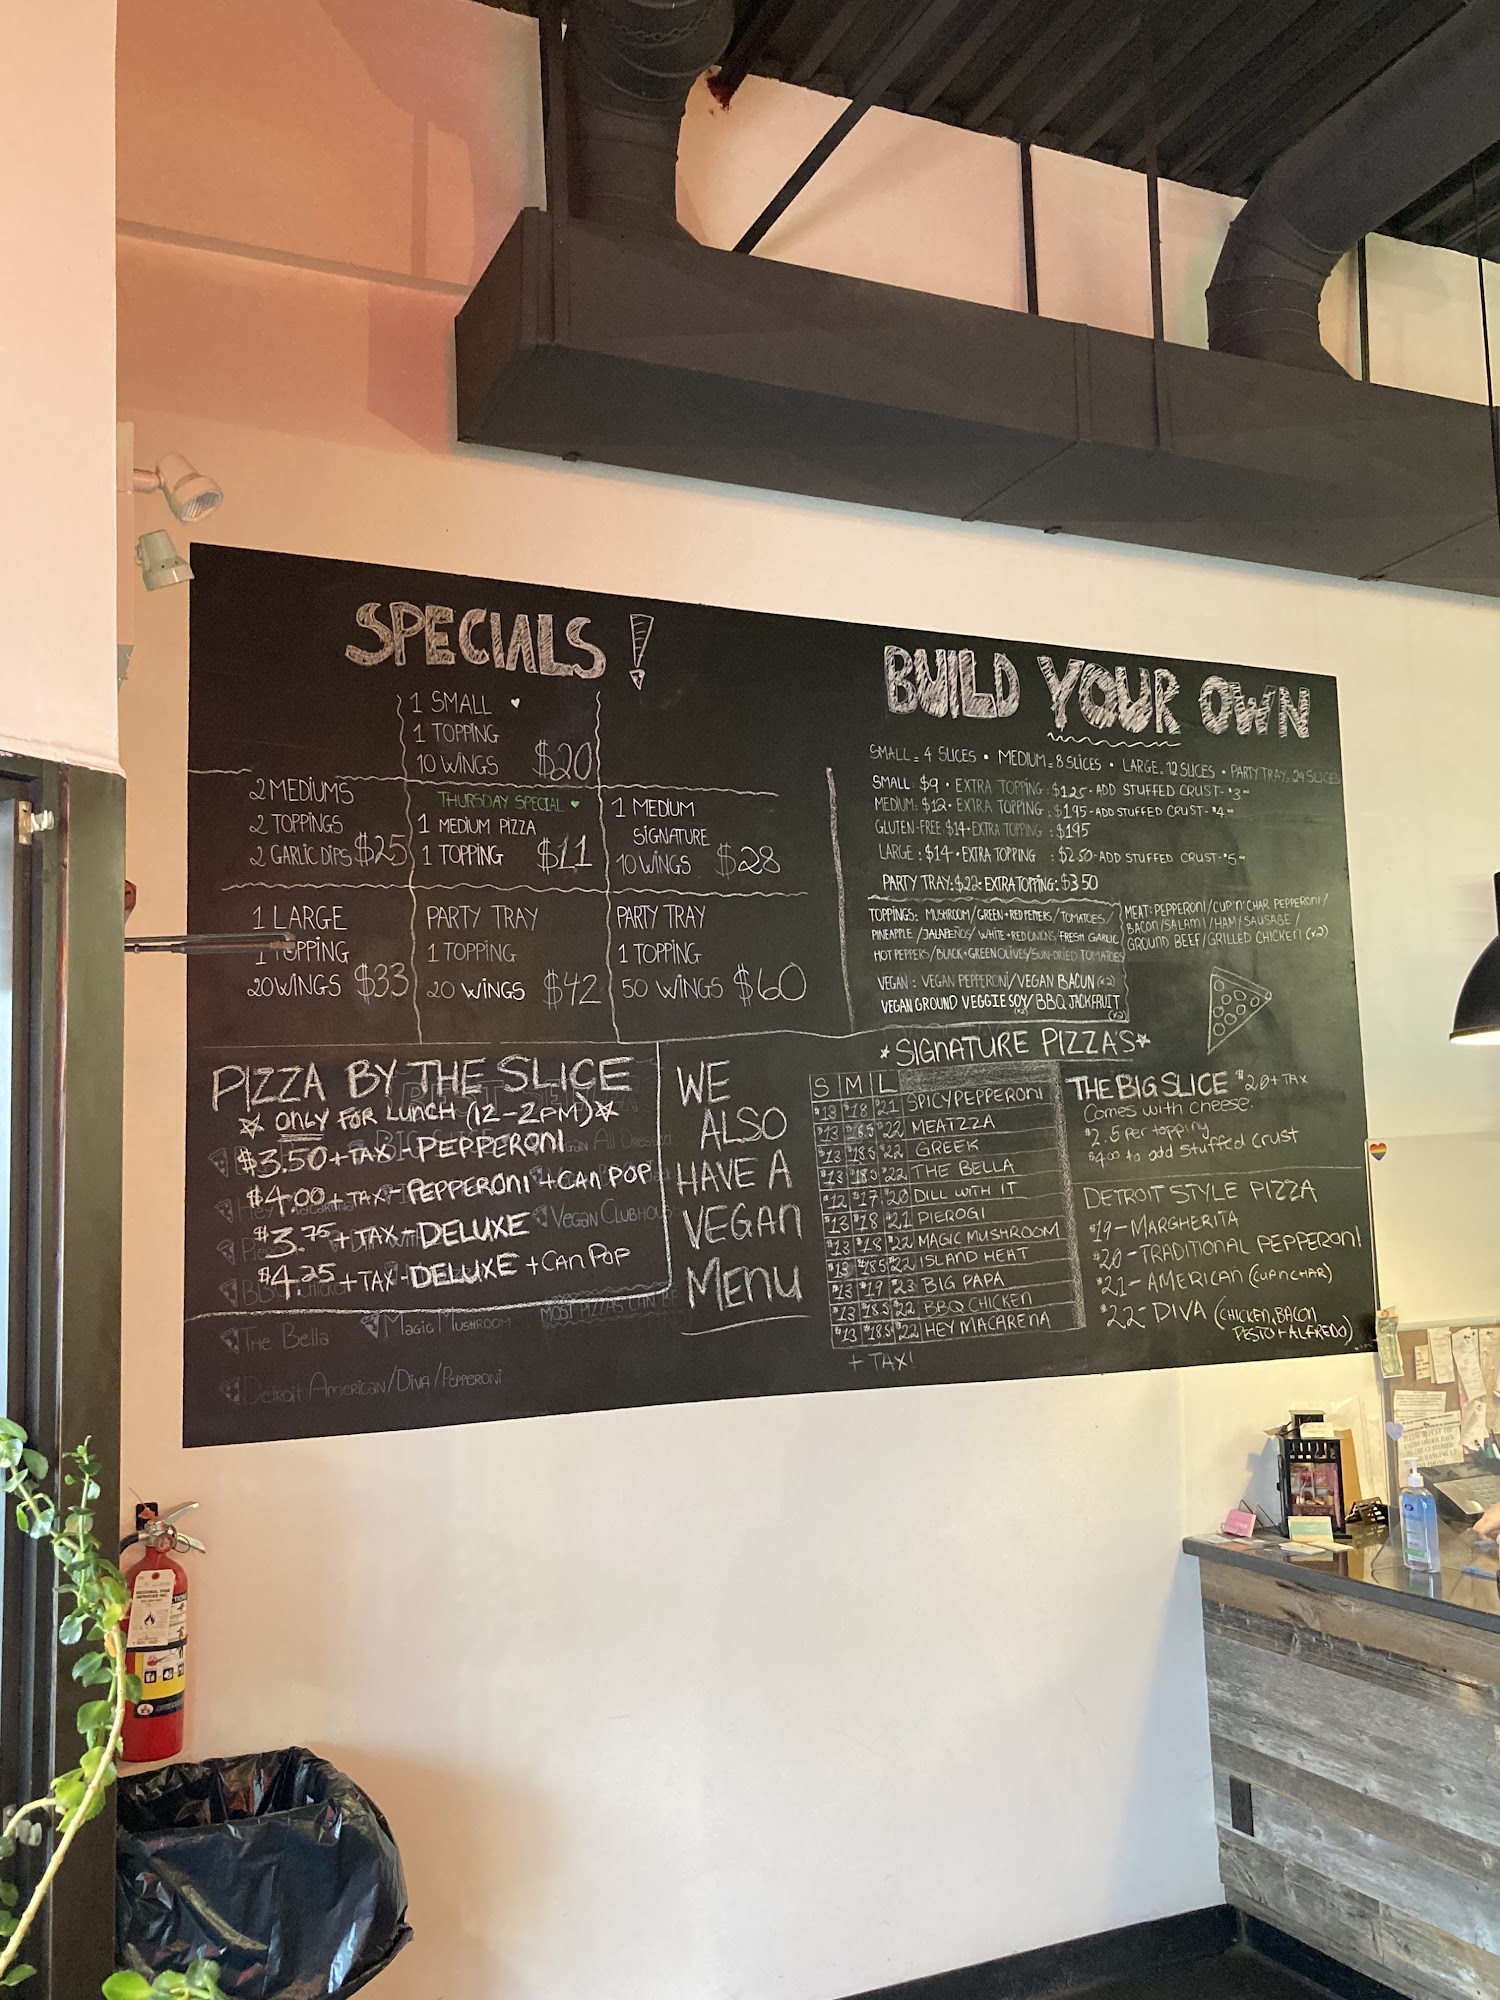 SPECIALS!
1 SMALL ♥
1 TOPPING
10 WINGS $20
2 MEDIUMS
2 TOPPINGS
2 GARLIC DIPS $25
THURSDAY SPECIAL ♥
1 MEDIUM PIZZA
1 TOPPING $11
1 MEDIUM
SIGNATURE
10 WINGS $28
1 LARGE
1 TOPPING
20 WINGS $33
PARTY TRAY
1 TOPPING
20 WINGS $42
PARTY TRAY
1 TOPPING
50 WINGS $60
BUILD YOUR OWN
SMALL = 4 SLICES • MEDIUM = 8 SLICES • LARGE = 12 SLICES • PARTY TRAY = 24 SLICES
SMALL: $9 • EXTRA TOPPING: $1.25 - ADD STUFFED CRUST - $3
MEDIUM: $12 • EXTRA TOPPING: $1.95 - ADD STUFFED CRUST - $4
GLUTEN-FREE $14 • EXTRA TOPPING: $1.95
LARGE: $14 • EXTRA TOPPING : $2.50 - ADD STUFFED CRUST - $5
PARTY TRAY: $22 • EXTRA TOPPING: $3.50
TOPPINGS: MUSHROOM / GREEN + RED PEPPERS / TOMATOES /
PINEAPPLE / JALAPEÑOS / WHITE + RED ONIONS / FRESH GARLIC
HOT PEPPERS / BLACK + GREEN OLIVES / SUN-DRIED TOMATOES
VEGAN: VEGAN PEPPERONI / VEGAN BACUN (x2)
VEGAN GROUND VEGGIE SOY (x2) / BBQ JACKFRUIT (x2)
MEAT: PEPPERONI / CUP'N'CHAR PEPPERONI /
BACON / SALAMI / HAM / SAUSAGE /
GROUND BEEF / GRILLED CHICKEN (x2)
PIZZA BY THE SLICE
ONLY FOR LUNCH (12-2PM)
$3.50 + TAX - PEPPERONI
$4.00 + TAX - PEPPERONI + CAN POP
$3.75 + TAX - DELUXE
$4.25 + TAX - DELUXE + CAN POP
VEGAN CLUBHOUSE
THE BELLA
MAGIC MUSHROOM
MOST PIZZAS CAN BE
DETROIT AMERICAN/DIVA/PEPPERONI
WE
ALSO
HAVE A
VEGAN
MENU
SIGNATURE PIZZA'S
S M L
$13 $18 $21 SPICY PEPPERONI
$13 $18.5 $22 MEATZZA
$13 $18.5 $22 GREEK
$13 $18.5 $22 THE BELLA
$12 $17 $20 DILL WITH IT
$13 $18 $21 PIEROGI
$13 $18 $22 MAGIC MUSHROOM
$13 $18.5 $22 ISLAND HEAT
$13 $19 $23 BIG PAPA
$13 $18.5 $22 BBQ CHICKEN
$13 $18.5 $22 HEY MACARENA
+ TAX!
THE BIG SLICE $20 + TAX
Comes with cheese.
$2.5 per topping
$4.00 to add stuffed crust
DETROIT STYLE PIZZA
$19 - MARGHERITA
$20 - TRADITIONAL PEPPERONI
$21 - AMERICAN (CUP N CHAR)
$22 - DIVA (CHICKEN, BACON
PESTO + ALFREDO)